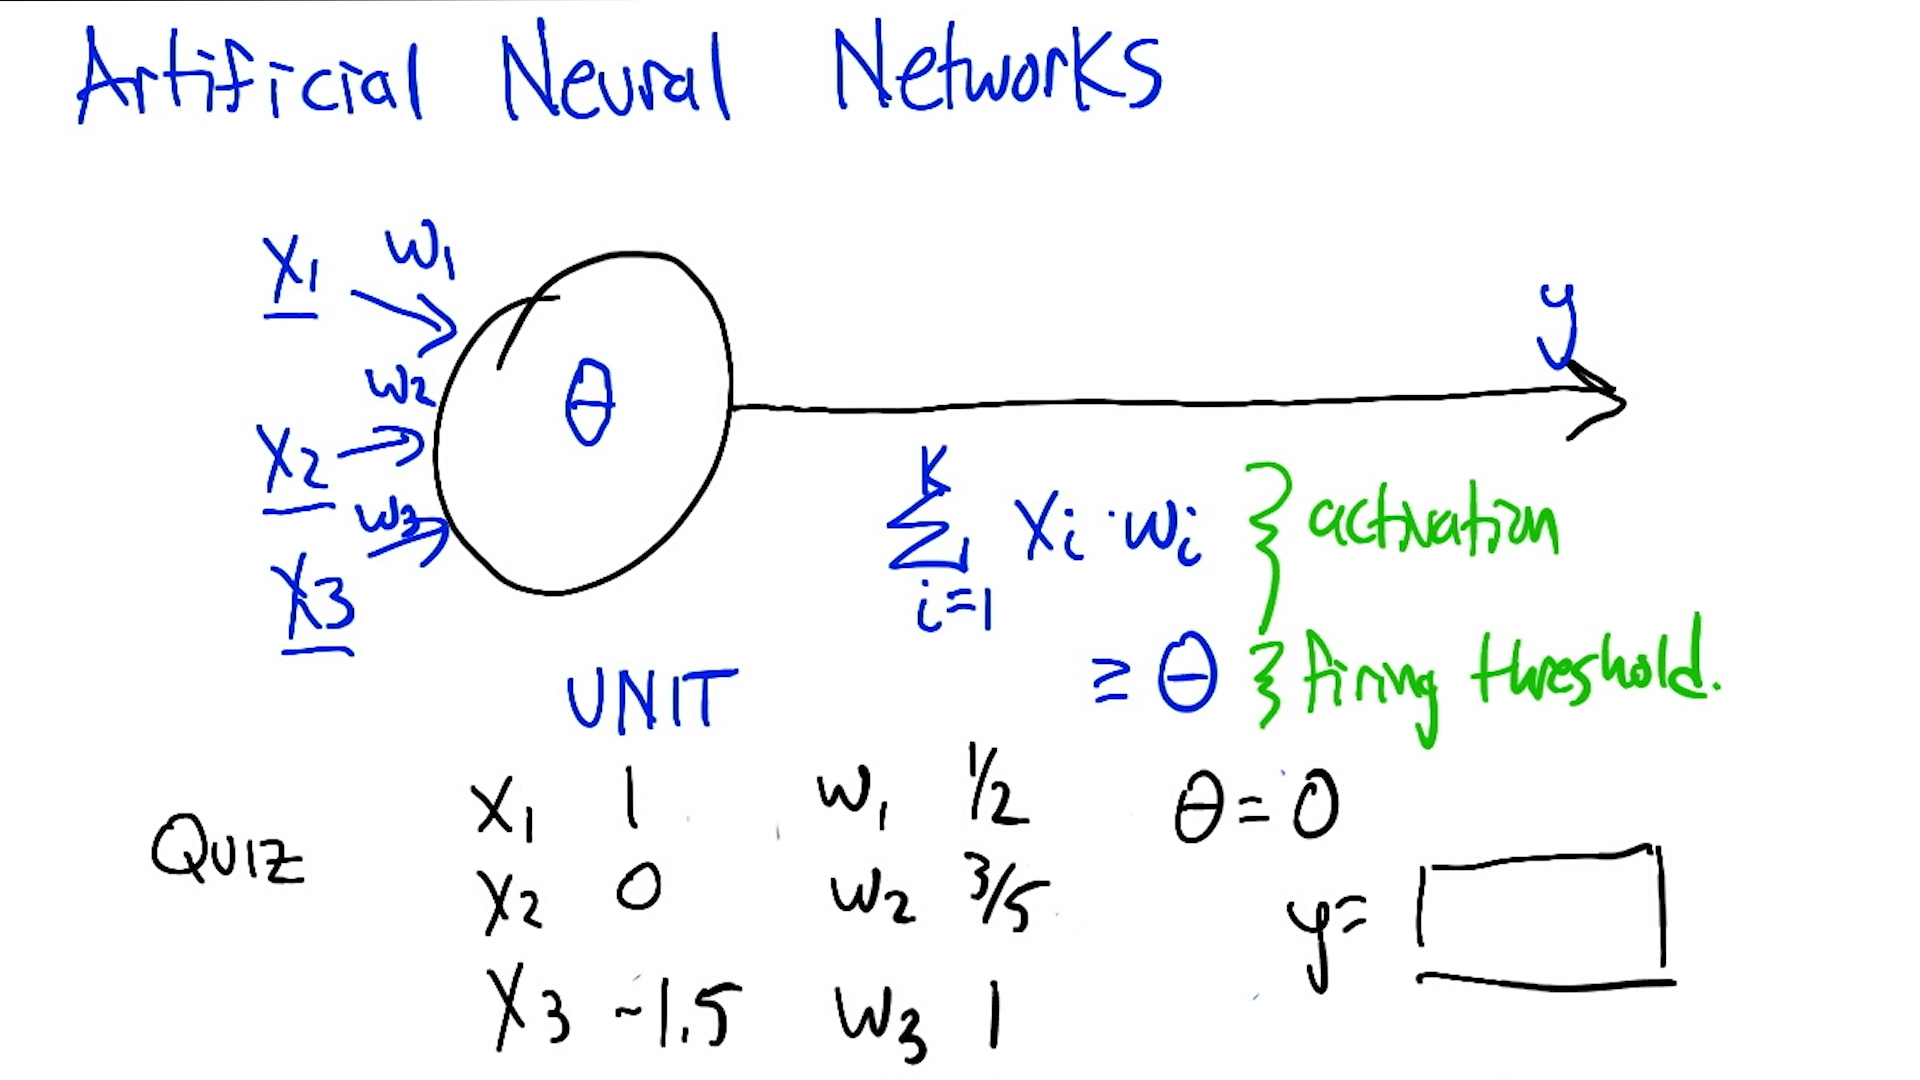 Artificial Neural Networks
x1 w1
w2
x2
w3
x3
θ
y
K
∑ xi · wi } activation
i=1
≥ θ } firing threshold.
UNIT
QUIZ
x1 1 w1 1/2 θ = 0
x2 0 w2 3/5 y =
x3 -1.5 w3 1